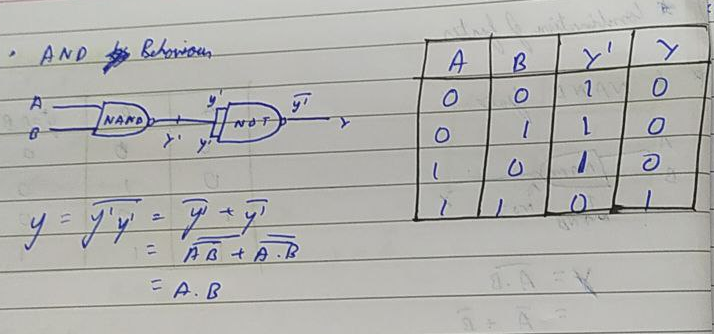 • AND Behaviour
A
B
NAND
Y'
y'
y'
NOT
y̅'̅
Y
y = \overline{y'y'} = \overline{y'} + \overline{y'}
= \overline{\overline{AB}} + \overline{\overline{A.B}}
= A.B
A B Y' Y
0 0 1 0
0 1 1 0
1 0 1 0
1 1 0 1